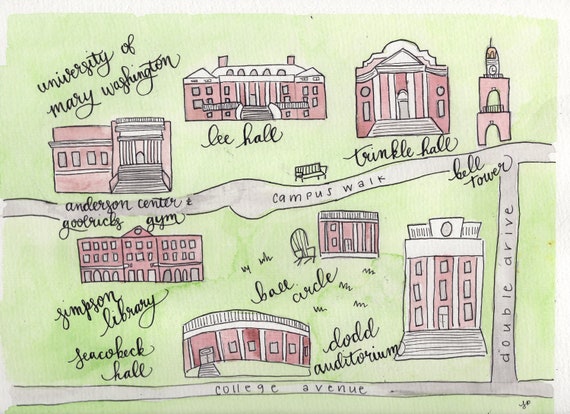 university of
mary washington
lee hall
trinkle hall
bell
tower
anderson center &
goolricks gym
campus walk
simpson
library
ball
circle
double drive
seacobeck
hall
dodd
auditorium
college avenue